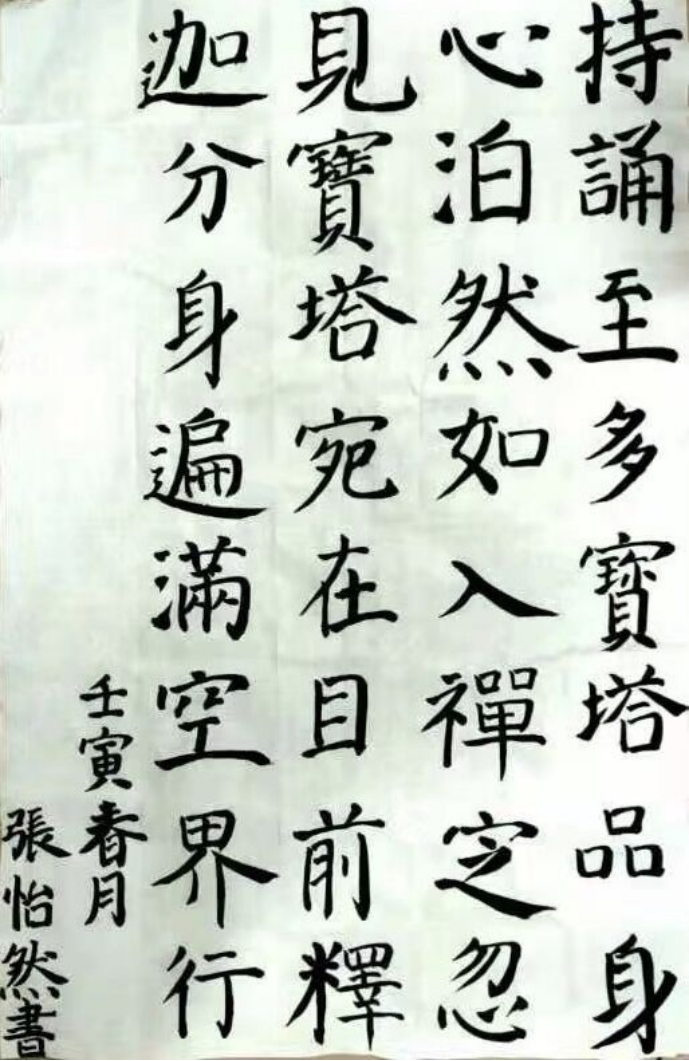 持誦至多寶塔品身
心泊然如入禪定忽
見寶塔宛在目前釋
迦分身遍滿空界行
壬寅春月
張怡然書